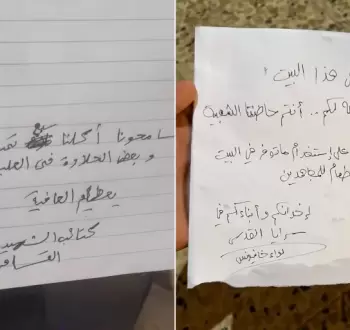 سامحونا أكلنا
وبعض الحلاوة في
يعطيكم العافية
كتائب
القسا
هذا البيت!
لكم.. أنتم حاضنتنا الشعبية
على استخدام ما توفر في البيت
طعام للمجاهدين
إخوانكم وأبناءكم في
سرايا القدس
لواء خانيونس